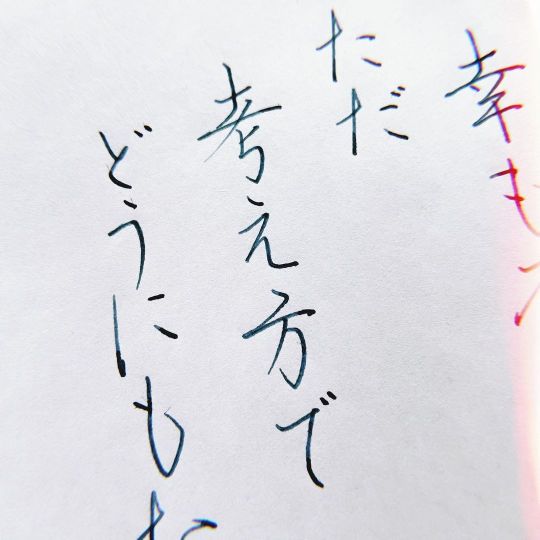 幸せ
ただ
考え方で
どうにもな